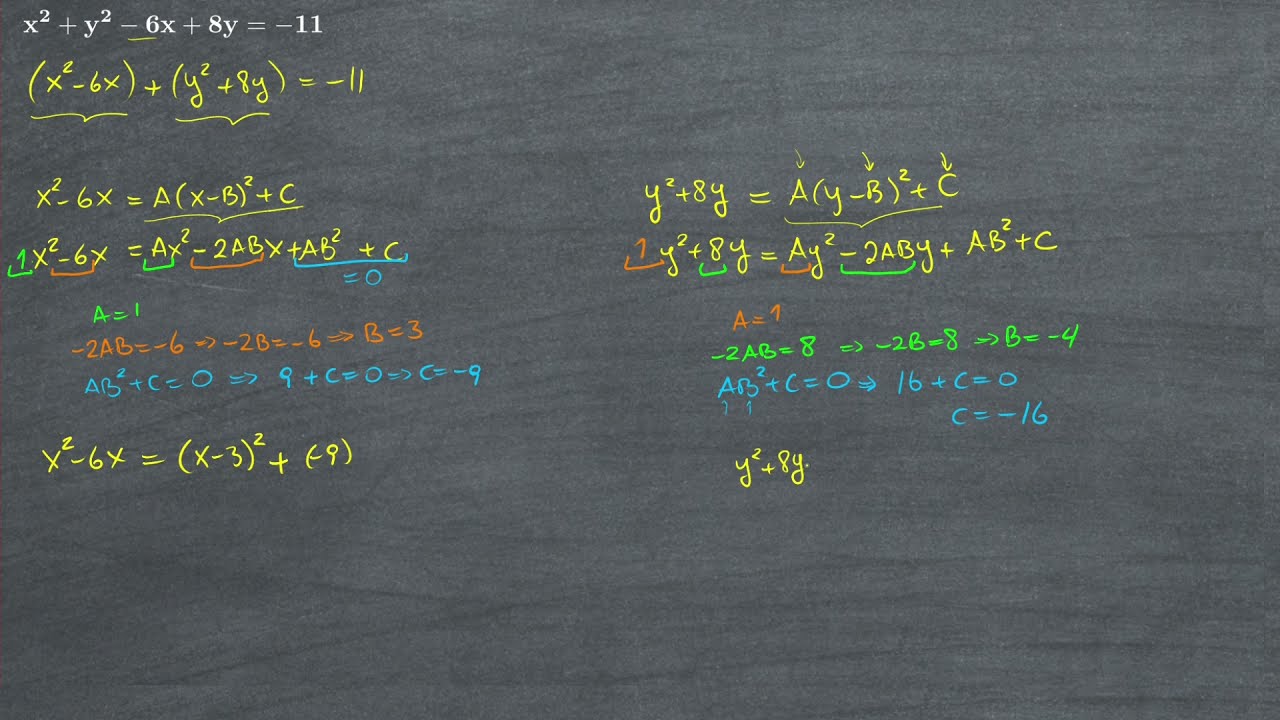 x² + y² − 6x + 8y = −11
(x²-6x) + (y²+8y) = -11
x²-6x = A(x-B)²+C
1x²-6x = Ax²-2ABx+AB²+C
=0
A=1
-2AB=-6 => -2B=-6 => B=3
AB²+C=0 => 9+C=0 => C=-9
x²-6x = (x-3)² + (-9)
y²+8y = A(y-B)²+C
1y²+8y = Ay²-2ABy+AB²+C
A=1
-2AB=8 => -2B=8 => B=-4
AB²+C=0 => 16+C=0
C=-16
y²+8y